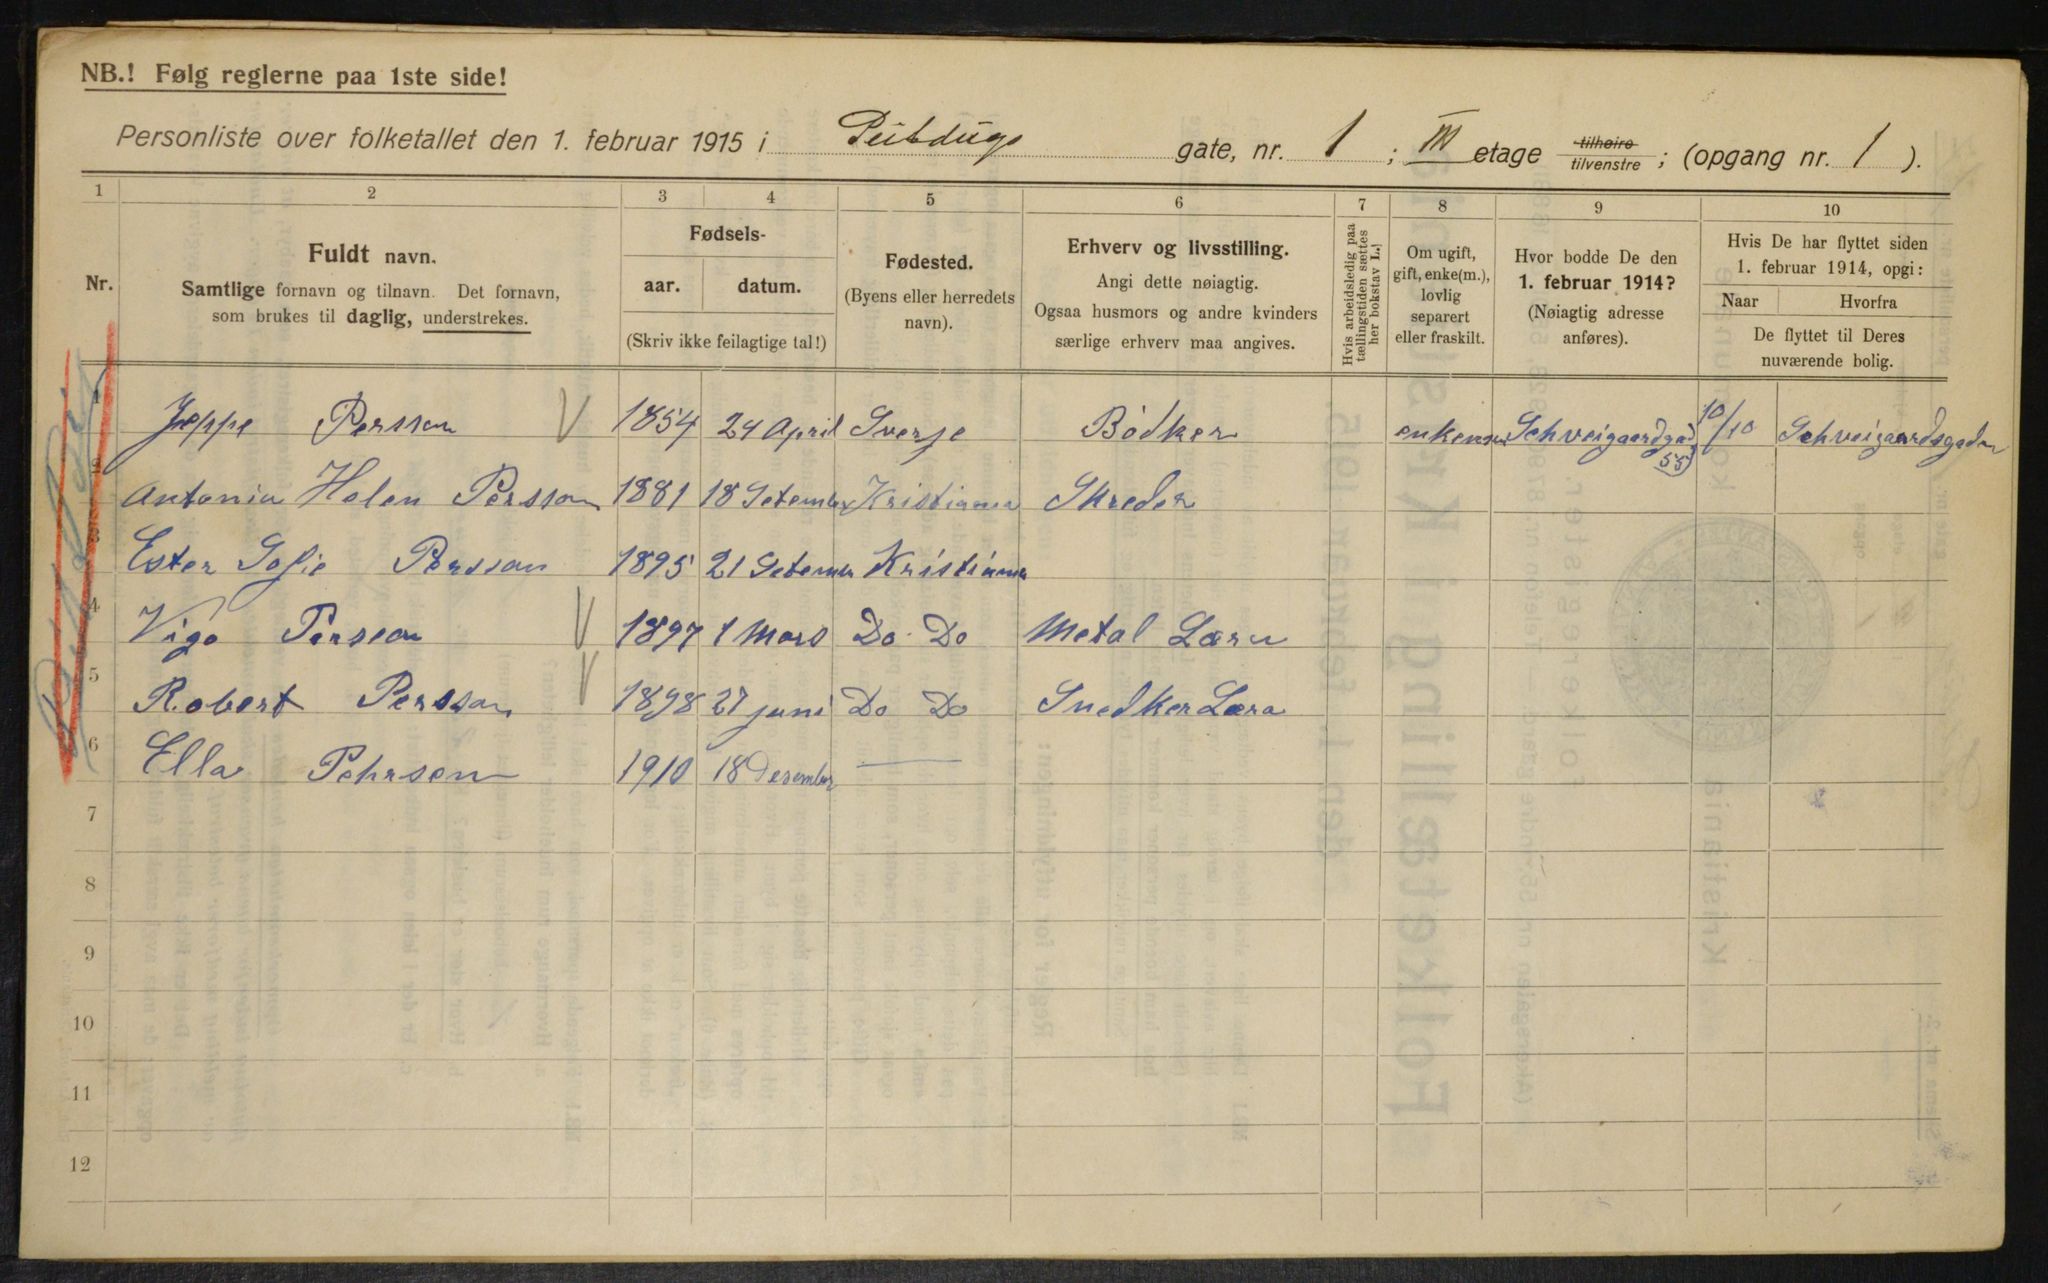 NB.! Følg reglerne paa 1ste side!
Personliste over folketallet den 1. februar 1915 i gate, nr. 1 ; III etage tilhøire tilvenstre ; (opgang nr. 1 ).
1 2 3 4 5 6 7 8 9 10
Nr.
Fuldt navn.
Samtlige fornavn og tilnavn. Det fornavn,
som brukes til daglig, understrekes.
Fødsels-
aar. datum.
(Skriv ikke feilagtige tal!)
Fødested.
(Byens eller herredets
navn).
Erhverv og livsstilling.
Angi dette nøiagtig.
Ogsaa husmors og andre kvinders
særlige erhverv maa angives.
Hvis arbeidsledig paa
tællingstiden sættes
her bokstav L.!
Om ugift,
gift, enke(m.),
lovlig
separert
eller fraskilt.
Hvor bodde De den
1. februar 1914?
(Nøiagtig adresse
anføres).
Hvis De har flyttet siden
1. februar 1914, opgi:
Naar Hvorfra
De flyttet til Deres
nuværende bolig.
1 Jeppe Persson 1854 24 April Sverje Bödker Schveigaardgad 55 10/10 Schveigaardsgaden
2 Antonia Helen Persson 1881 18 Setember Kristiania Skreder
3 Ester Sofie Persson 1895 21 Setember Kristiania
4 Vigo Persson 1897 1 Mars Do Do Metal Læru
5 Robert Persson 1898 27 juni Do Do Snedker Læra
6 Ella Pehrsen 1910 18 Desember —
7
8
9
10
11
12